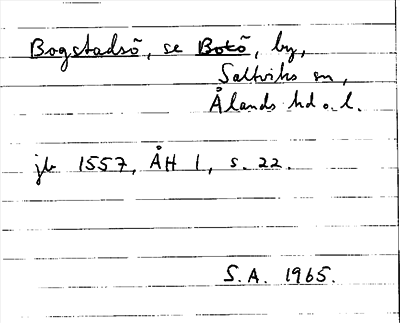 Bogstadsö, se Bokö, by,
Saltviks sn,
Ålands hd o. l.
jb 1557, ÅH 1, s. 22.
S.A. 1965.